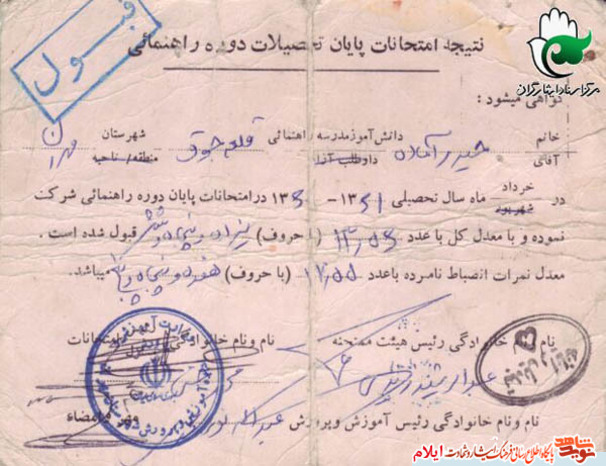 قبول
نتیجه امتحانات پایان تحصیلات دوره راهنمائی
مرکز اسناد ایثارگران
گواهی میشود :
خانم
آقای
حیدر
دانش‌آموز مدرسه راهنمائی
داوطلب آزاد
قلعه جوق
شهرستان
منطقه/ناحیه
مهران
در خرداد
شهریور
ماه سال تحصیلی ۱۳۶۱ - ۱۳۶۰ در امتحانات پایان دوره راهنمائی شرکت
نموده و با معدل کل با عدد (با حروف) قبول شده است .
معدل نمرات انضباط نامبرده با عدد ۱۷/۵۵ (با حروف) هفده و پنجاه و پنج میباشد.
نام و نام خانوادگی رئیس هیئت ممتحنه
نام و نام خانوادگی امتحانات
نام و نام خانوادگی رئیس آموزش و پرورش
مهر و امضاء
نوید شاهد
پایگاه اطلاع رسانی فرهنگ ایثار و شهادت ایلام